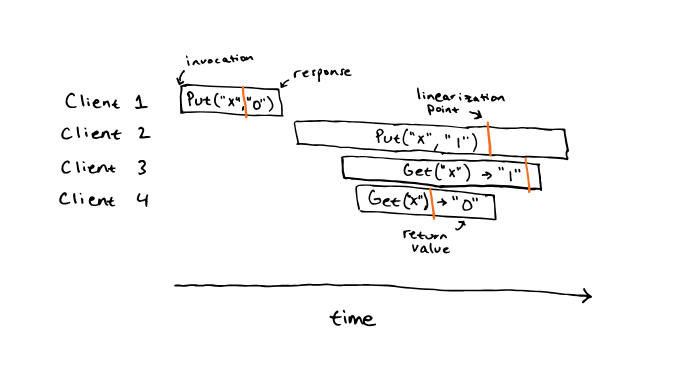 invocation
response
Client 1 Put("x","0")
linearization
point
Client 2 Put("x", "1")
Client 3 Get("x") → "1"
Client 4 Get("x") → "0"
return
value
time